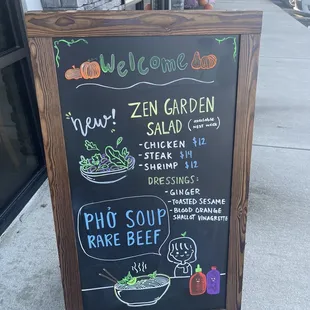 Welcome
new!
ZEN GARDEN
SALAD (AVAILABLE NEXT WEEK)
- CHICKEN $12
- STEAK $14
- SHRIMP $12
DRESSINGS:
- GINGER
- TOASTED SESAME
- BLOOD ORANGE
SHALLOT VINAIGRETTE
PHỞ SOUP
RARE BEEF